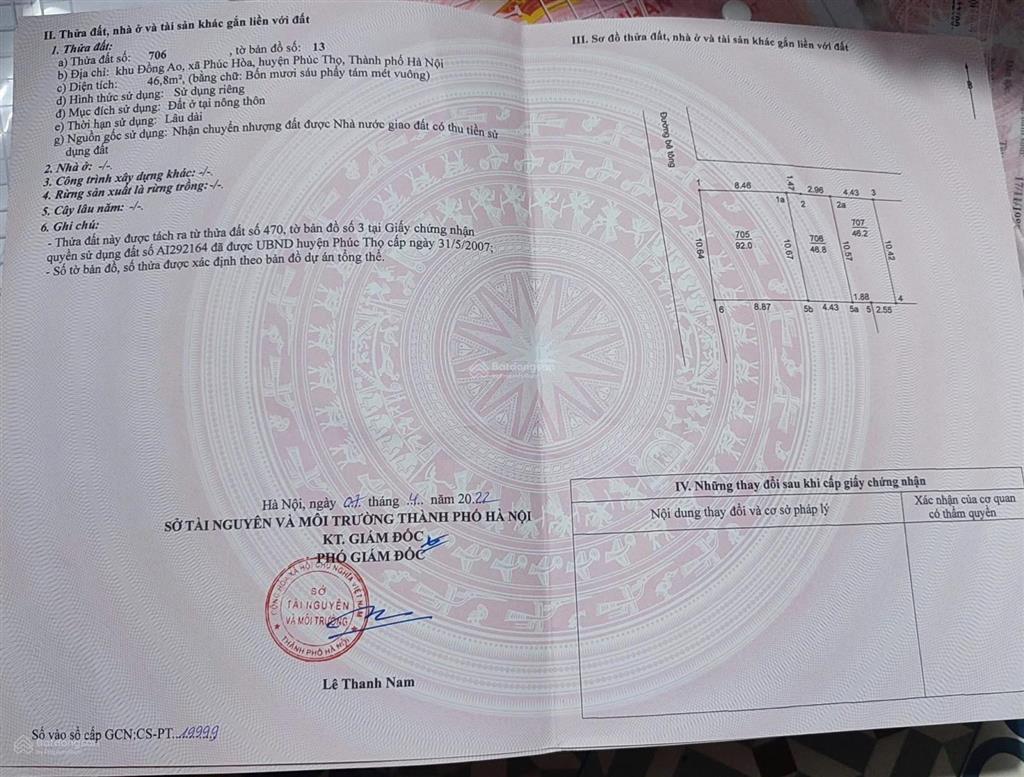 II. Thửa đất, nhà ở và tài sản khác gắn liền với đất
1. Thửa đất:
a) Thửa đất số: 706 , tờ bản đồ số: 13
b) Địa chỉ: khu Đồng Ao, xã Phúc Hòa, huyện Phúc Thọ, Thành phố Hà Nội
c) Diện tích: 46,8m², (bằng chữ: Bốn mươi sáu phẩy tám mét vuông)
d) Hình thức sử dụng: Sử dụng riêng
đ) Mục đích sử dụng: Đất ở tại nông thôn
e) Thời hạn sử dụng: Lâu dài
g) Nguồn gốc sử dụng: Nhận chuyển nhượng đất được Nhà nước giao đất có thu tiền sử
dụng đất
2. Nhà ở: -/-.
3. Công trình xây dựng khác: -/-.
4. Rừng sản xuất là rừng trồng: -/-.
5. Cây lâu năm: -/-.
6. Ghi chú:
- Thửa đất này được tách ra từ thửa đất số 470, tờ bản đồ số 3 tại Giấy chứng nhận
quyền sử dụng đất số AI292164 đã được UBND huyện Phúc Thọ cấp ngày 31/5/2007;
- Số tờ bản đồ, số thửa được xác định theo bản đồ dự án tổng thể.
Hà Nội, ngày 07 tháng 4 năm 2022
SỞ TÀI NGUYÊN VÀ MÔI TRƯỜNG THÀNH PHỐ HÀ NỘI
KT. GIÁM ĐỐC
PHÓ GIÁM ĐỐC
CỘNG HÒA XÃ HỘI CHỦ NGHĨA VIỆT NAM
SỞ
TÀI NGUYÊN
VÀ MÔI TRƯỜNG
THÀNH PHỐ HÀ NỘI
Lê Thanh Nam
Số vào sổ cấp GCN;CS-PT...19999
III. Sơ đồ thửa đất, nhà ở và tài sản khác gắn liền với đất
B
Đường bê tông
1 8.46 1.47 2.96 4.43 3
1a 2 2a
707
46.2
705
92.0
706
46.8
10.64 10.67 10.57 10.42
1.88 4
6 8.87 5b 4.43 5a 5 2.55
Batdongsan
IV. Những thay đổi sau khi cấp giấy chứng nhận
Nội dung thay đổi và cơ sở pháp lý
Xác nhận của cơ quan
có thẩm quyền
Batdongsan